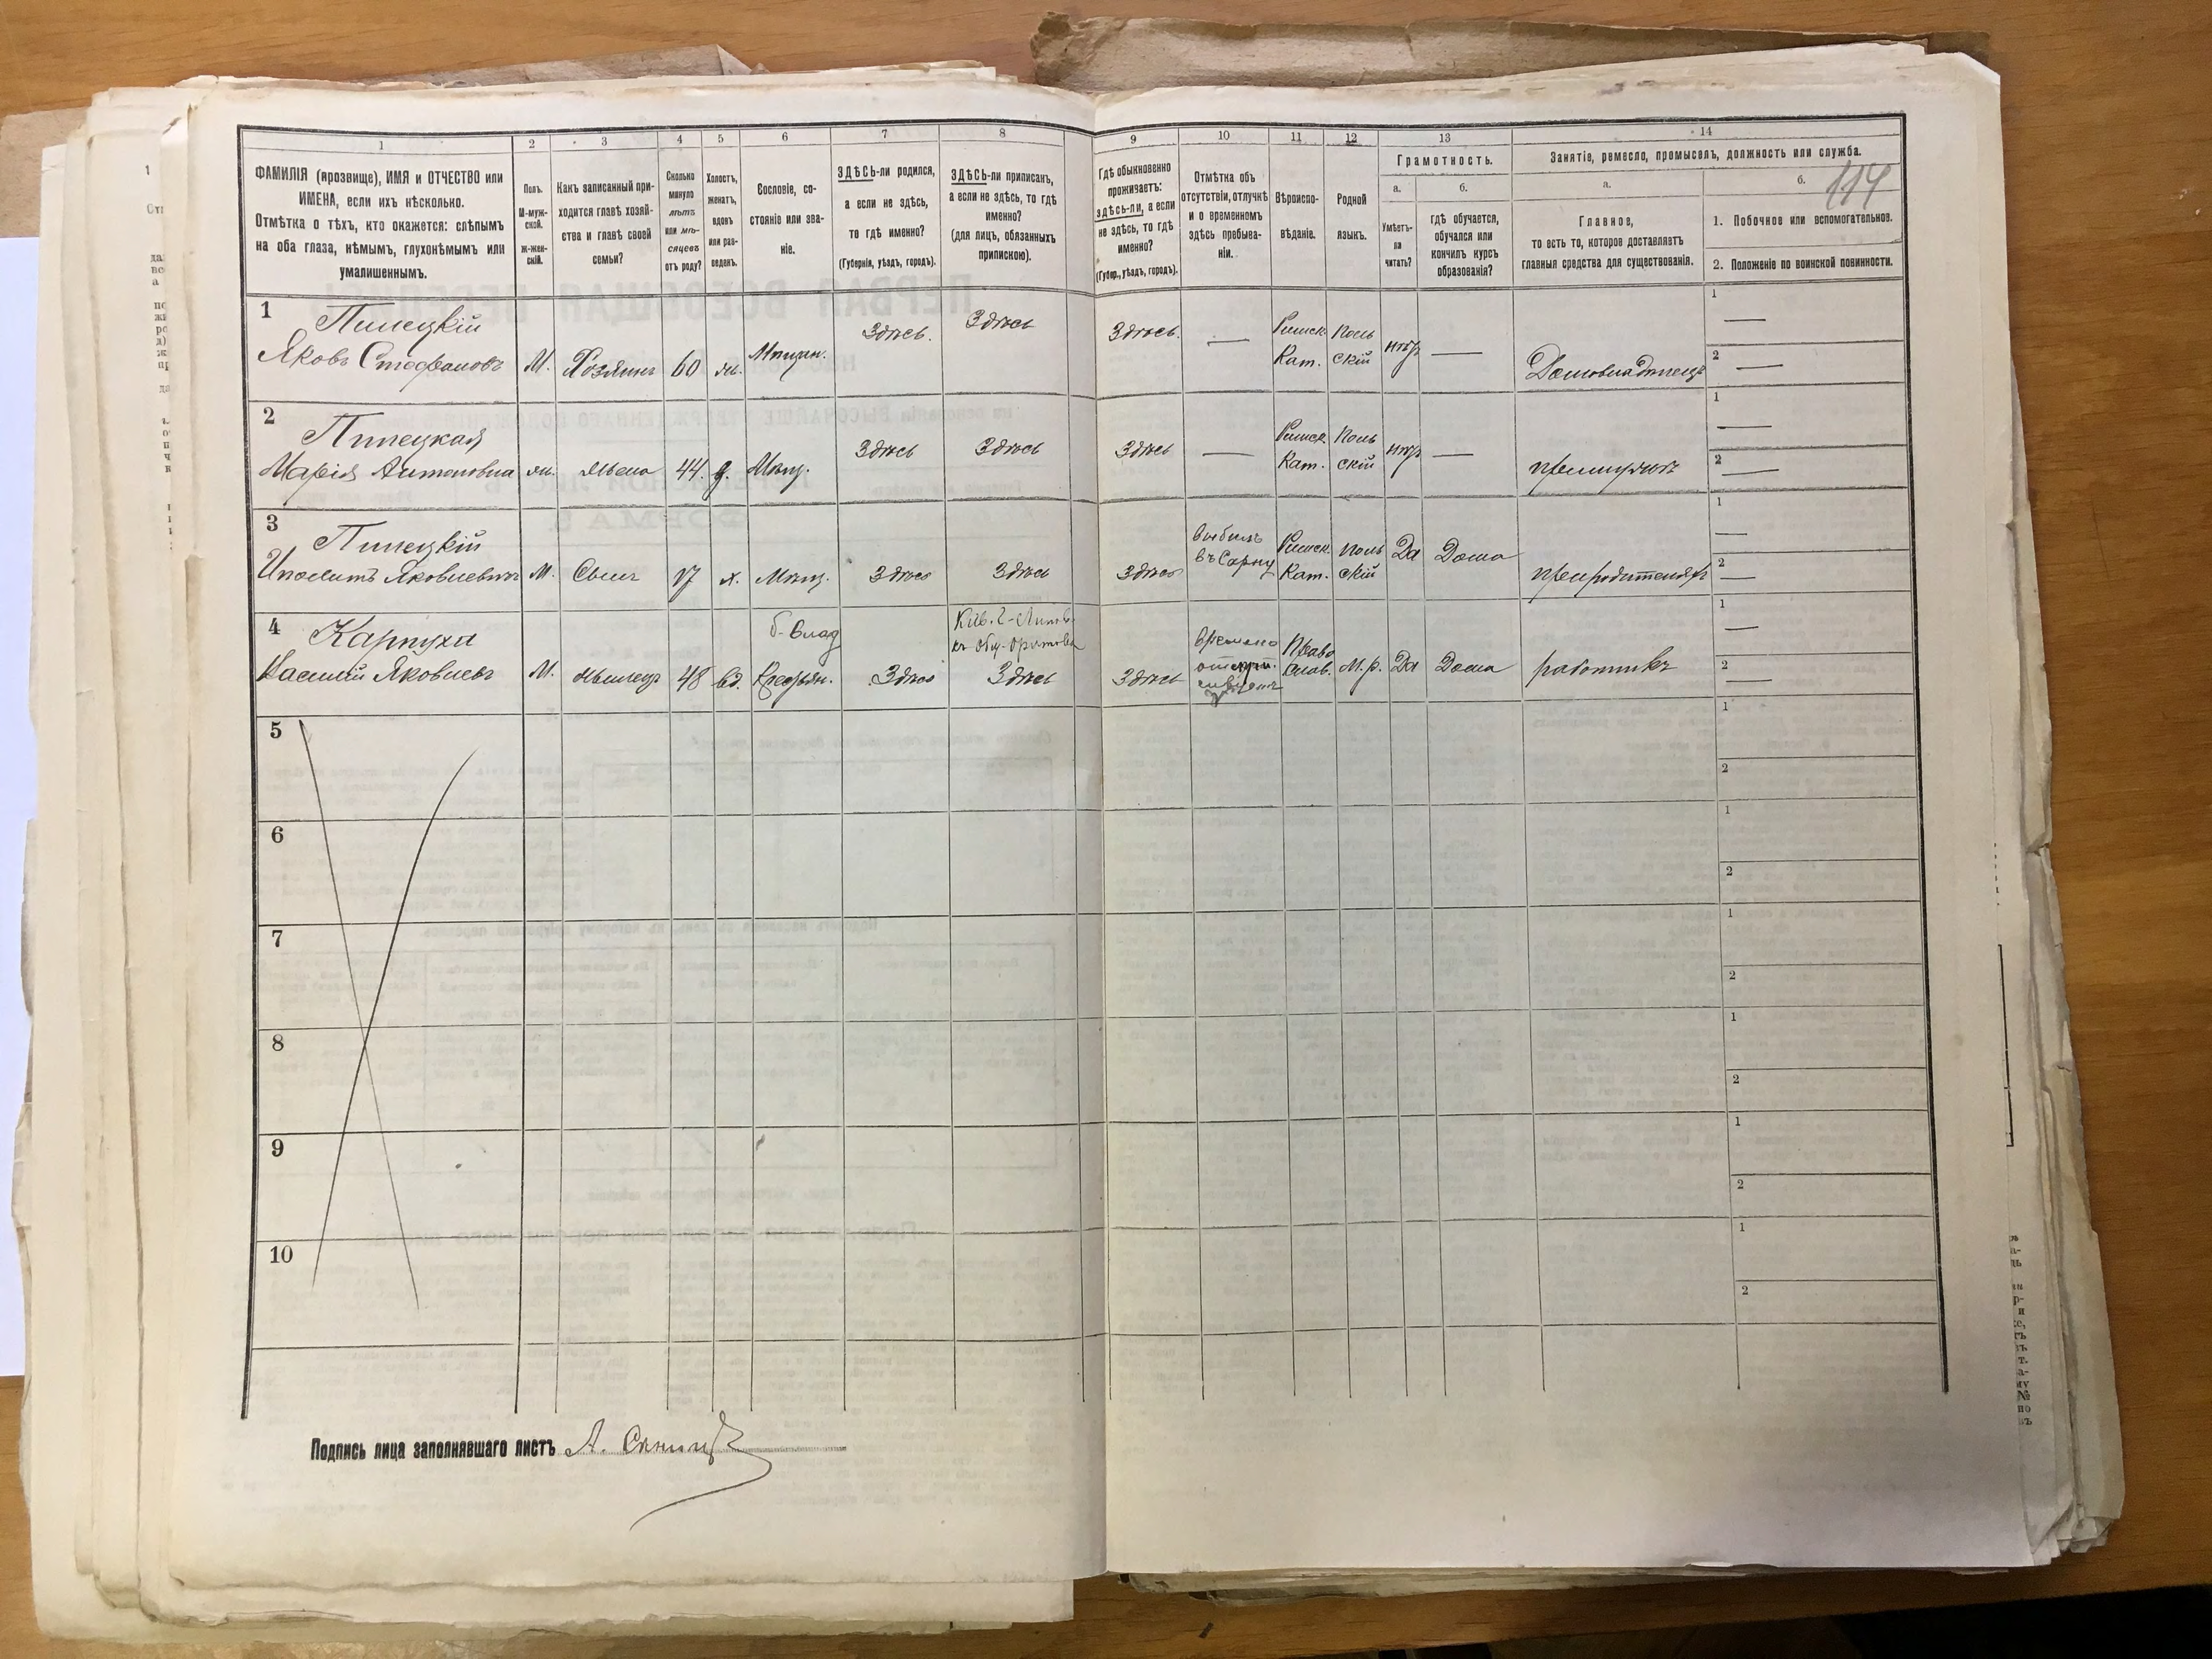 114
1
2
3
4
5
6
7
8
9
10
11
12
13
14
ФАМИЛІЯ (прозвище), ИМЯ и ОТЧЕСТВО или
ИМЕНА, если ихъ нѣсколько.
Отмѣтка о тѣхъ, кто окажется: слѣпымъ
на оба глаза, нѣмымъ, глухонѣмымъ или
умалишеннымъ.
Полъ.
М-муж-
ской.
Ж-жен-
скій.
Какъ записанный при-
ходится главѣ хозяй-
ства и главѣ своей
семьи?
Сколько
минуло
лѣтъ
или мѣ-
сяцевъ
отъ роду?
Холостъ,
женатъ,
вдовъ
или раз-
веденъ.
Сословіе, со-
стояніе или зва-
ніе.
ЗДѢСЬ-ли родился,
а если не здѣсь,
то гдѣ именно?
(Губернія, уѣздъ, городъ).
ЗДѢСЬ-ли приписанъ,
а если не здѣсь, то гдѣ
именно?
(для лицъ, обязанныхъ
припискою).
Гдѣ обыкновенно
проживаетъ:
здѣсь-ли, а если
не здѣсь, то гдѣ
именно?
(Губер., уѣздъ, городъ).
Отмѣтка объ
отсутствіи, отлучкѣ
и о временномъ
здѣсь пребыва-
ніи.
Вѣроиспо-
вѣданіе.
Родной
языкъ.
Грамотность.
а.
Умѣетъ-
ли
читать?
б.
гдѣ обучается,
обучался или
кончилъ курсъ
образованія?
Занятіе, ремесло, промыселъ, должность или служба.
а.
Главное,
то есть то, которое доставляетъ
главныя средства для существованія.
б.
1. Побочное или вспомогательное.
2. Положеніе по воинской повинности.
1
Пилецкій
Яковъ Стефановъ
М.
Хозяинъ
60
ж.
Мѣщан.
Здѣсь.
Здѣсь
Здѣсь.
—
Римск.
Кат.
Поль
скій
нѣтъ
—
Домовладѣлецъ
1
—
2
—
2
Пилецкая
Марія Антоновна
ж.
Жена
44.
з.
Мѣщ.
Здѣсь
Здѣсь
Здѣсь
—
Римск.
Кат.
Поль
скій
нѣтъ
—
при мужѣ
1
—
2
—
3
Пилецкій
Иполитъ Яковлевичъ
М.
Сынъ
17
х.
Мѣщ.
Здѣсь
Здѣсь
Здѣсь
выбылъ
въ Сарны
Римск.
Кат.
Поль
скій
Да
Дома
при родителяхъ
1
—
2
—
4
Карпуха
Василій Яковлевъ
М.
Жилецъ
48
вд.
б. влад
Крестьян.
Здѣсь
Здѣсь
Здѣсь
Право
слав.
М.р.
Да
Дома
работникъ
1
—
2
—
5
1
2
6
1
2
7
1
2
8
1
2
9
1
2
10
1
2
Подпись лица заполнявшаго листъ А.